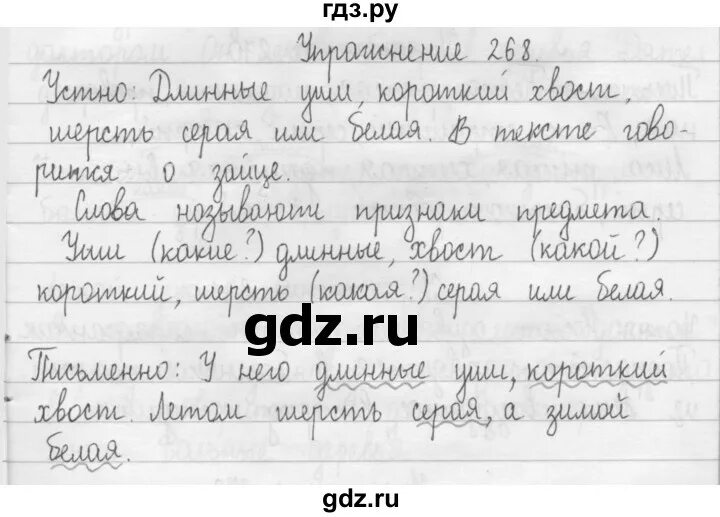 гдз.ру
Упражнение 268.
Устно: Длинные уши, короткий хвост,
шерсть серая или белая. В тексте гово-
рится о зайце.
Слова называют признаки предмета
Уши (какие?) длинные, хвост (какой?)
короткий, шерсть (какая?) серая или белая.
gdz.ru
Письменно: У него длинные уши, короткий
хвост. Летом шерсть серая, а зимой
белая.
gdz.ru